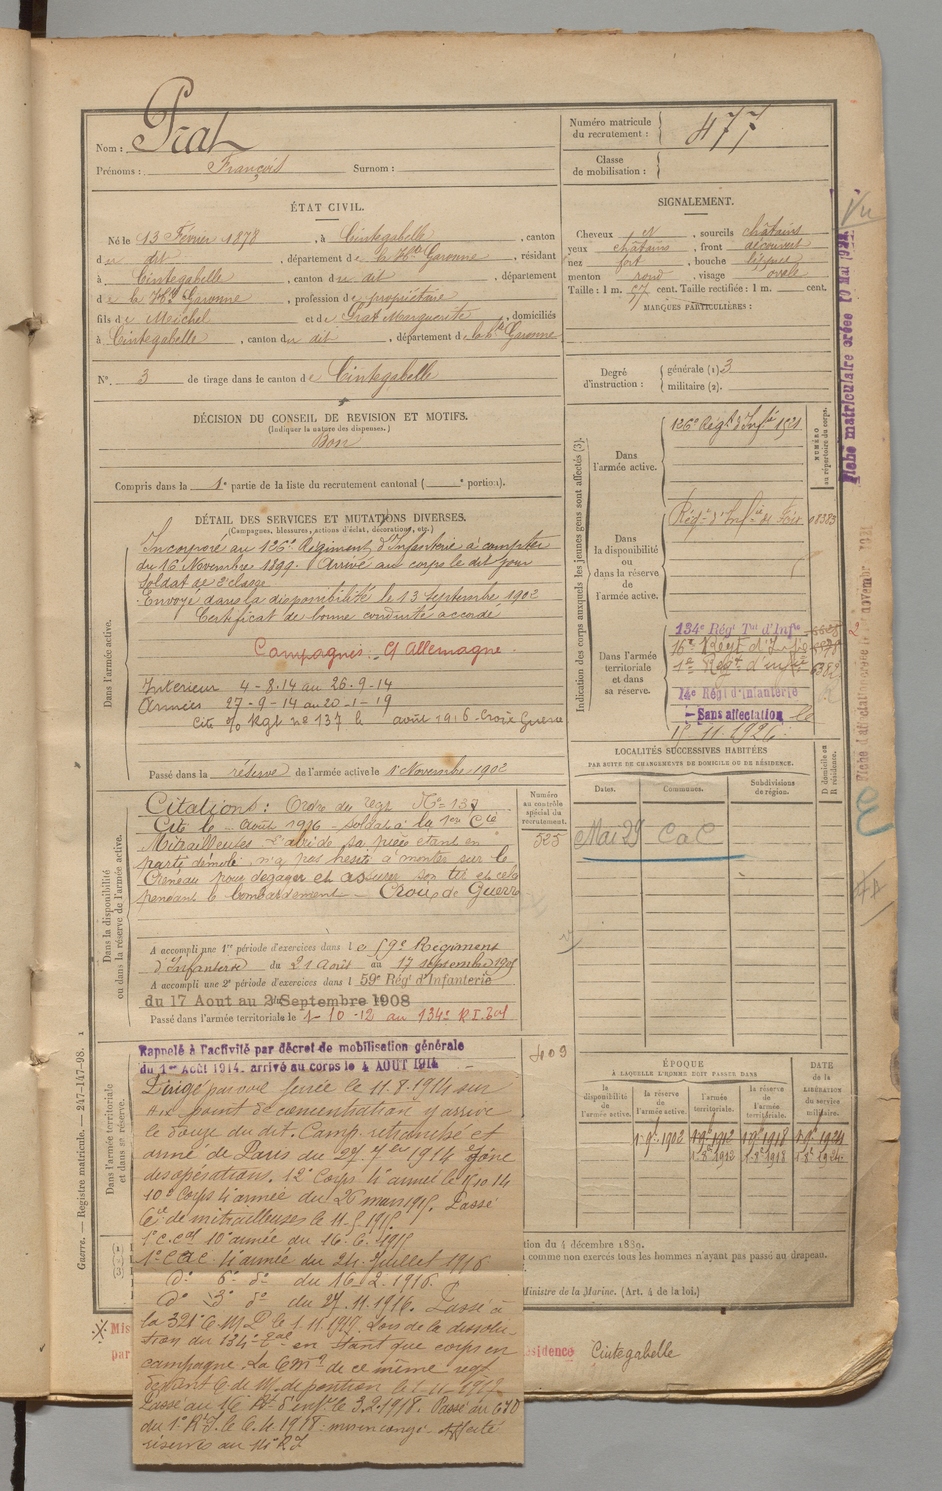 Nom : Prat
Prénoms : François Surnom :
Numéro matricule du recrutement : 477
Classe de mobilisation :
ÉTAT CIVIL.
Né le 13 Février 1878, à Cintegabelle, canton
du dit, département de la Hte Garonne, résidant
à Cintegabelle, canton du dit, département
de la Hte Garonne, profession de propriétaire
fils de Michel et de Prat Marguerite, domiciliés
à Cintegabelle, canton du dit, département de la Hte Garonne
N° 3 de tirage dans le canton de Cintegabelle
SIGNALEMENT.
Cheveux et, sourcils châtains
yeux châtains, front découvert
nez fort, bouche
menton rond, visage ovale
Taille : 1 m. cent. Taille rectifiée : 1 m. cent.
MARQUES PARTICULIÈRES :
Degré d'instruction : générale (1) 3
militaire (2).
DÉCISION DU CONSEIL DE REVISION ET MOTIFS.
(Indiquer la nature des dispenses.)
Bon
Compris dans la 1e partie de la liste du recrutement cantonal ( e portion).
DÉTAIL DES SERVICES ET MUTATIONS DIVERSES.
(Campagnes, blessures, actions d'éclat, décorations, etc.)
Dans l'armée active.
Incorporé au 126e Régiment d'Infanterie à compter
du 16 Novembre 1899. Arrivé au corps le dit jour
soldat de 2e classe
Envoyé dans la disponibilité le 13 septembre 1902
Certificat de bonne conduite accordé
Campagnes : C/ Allemagne.
Intérieur 4-8-14 au 26-9-14
Armées 27-9-14 au 20-1-19
Cité o/ Rgt n° 137 le août 1916 - Croix Guerre
Passé dans la réserve de l'armée active le 1er Novembre 1902
Indication des corps auxquels les jeunes gens sont affectés (3).
NUMÉRO au répertoire du corps.
Dans l'armée active.
126e Régt d'Infie
Dans la disponibilité ou dans la réserve de l'armée active.
Régt d'Infie de Foix 01383
Dans l'armée territoriale et dans sa réserve.
134e Régt Tal d'Infie
16e Régt d'Infie
1er Régt d'infie
14e Régt d'Infanterie
Sans affectation le
11.1926
Fiche matriculaire créée 10 Mai 1921
Vu
LOCALITÉS SUCCESSIVES HABITÉES
PAR SUITE DE CHANGEMENTS DE DOMICILE OU DE RÉSIDENCE.
Dates. Communes. Subdivisions de région. D domicile ou R résidence.
Mai 29 CaC
Dans la disponibilité ou dans la réserve de l'armée active.
Numéro au contrôle spécial du recrutement.
525
Citations : Ordre du regt N° 137
Cité le .. Août 1916 - soldat à la 1ère Cie
Mitrailleuses L'abri de sa pièce étant en
partie démoli n'a pas hésité à monter sur le
Créneau pour dégager et assurer son tir et cela
pendant le bombardement - Croix de Guerre
A accompli une 1re période d'exercices dans le 59e Régiment
d'Infanterie du 21 Août au 17 septembre 1905
A accompli une 2e période d'exercices dans l 59e Régt d'Infanterie
du 17 Aout au Septembre 1908
Passé dans l'armée territoriale le 1-10-12 au 134e R.I. Tal
Dans l'armée territoriale et dans sa réserve.
Rappelé à l'activité par décret de mobilisation générale
du 1er Août 1914. arrivé au corps le 4 AOUT 1914
409
Dirigé par voie ferrée le 11.8.1914 sur
son point de concentration y arrive
le douze du dit. Camp retranché et
armé de Paris du 27 7bre 1914 zône
des opérations. 12e Corps 4e armée le
10e Corps 4e armée du 26 mars 1915. Passé
Cie de mitrailleuses le 11.5.1915.
1er C.Cal 10e armée du 16.6.1915
1er C.A.C. 4e armée du 24 Juillet 1916
do 6e do du 16.2.1916.
do 3e do du 27.11.1916. Passé à
la 321e C.M.P. le 1.11.1917. Lors de la dissolu-
tion du 134e Tal en tant que corps en
campagne. La C.M.2 de ce même regt
devient C. de M. de position le 1.11.1917
Passé au 16e Rt d'infie le 3.2.1918. Passé au
du 1er R.I. le 6.4.1918. mis en congé. Affecté
réserves au 14e R.I
ÉPOQUE
À LAQUELLE L'HOMME DOIT PASSER DANS
la disponibilité de l'armée active. la réserve de l'armée active. l'armée territoriale. la réserve de l'armée territoriale.
DATE de la LIBÉRATION du service militaire.
1-9-1902 1-9-1912 1-9-1918 1-9-1924
tion du 4 décembre 1889.
comme non exercés tous les hommes n'ayant pas passé au drapeau.
Ministre de la Marine. (Art. 4 de la loi.)
Mis
par
résidence Cintegabelle
Guerre. — Registre matricule. — 247-147-98.